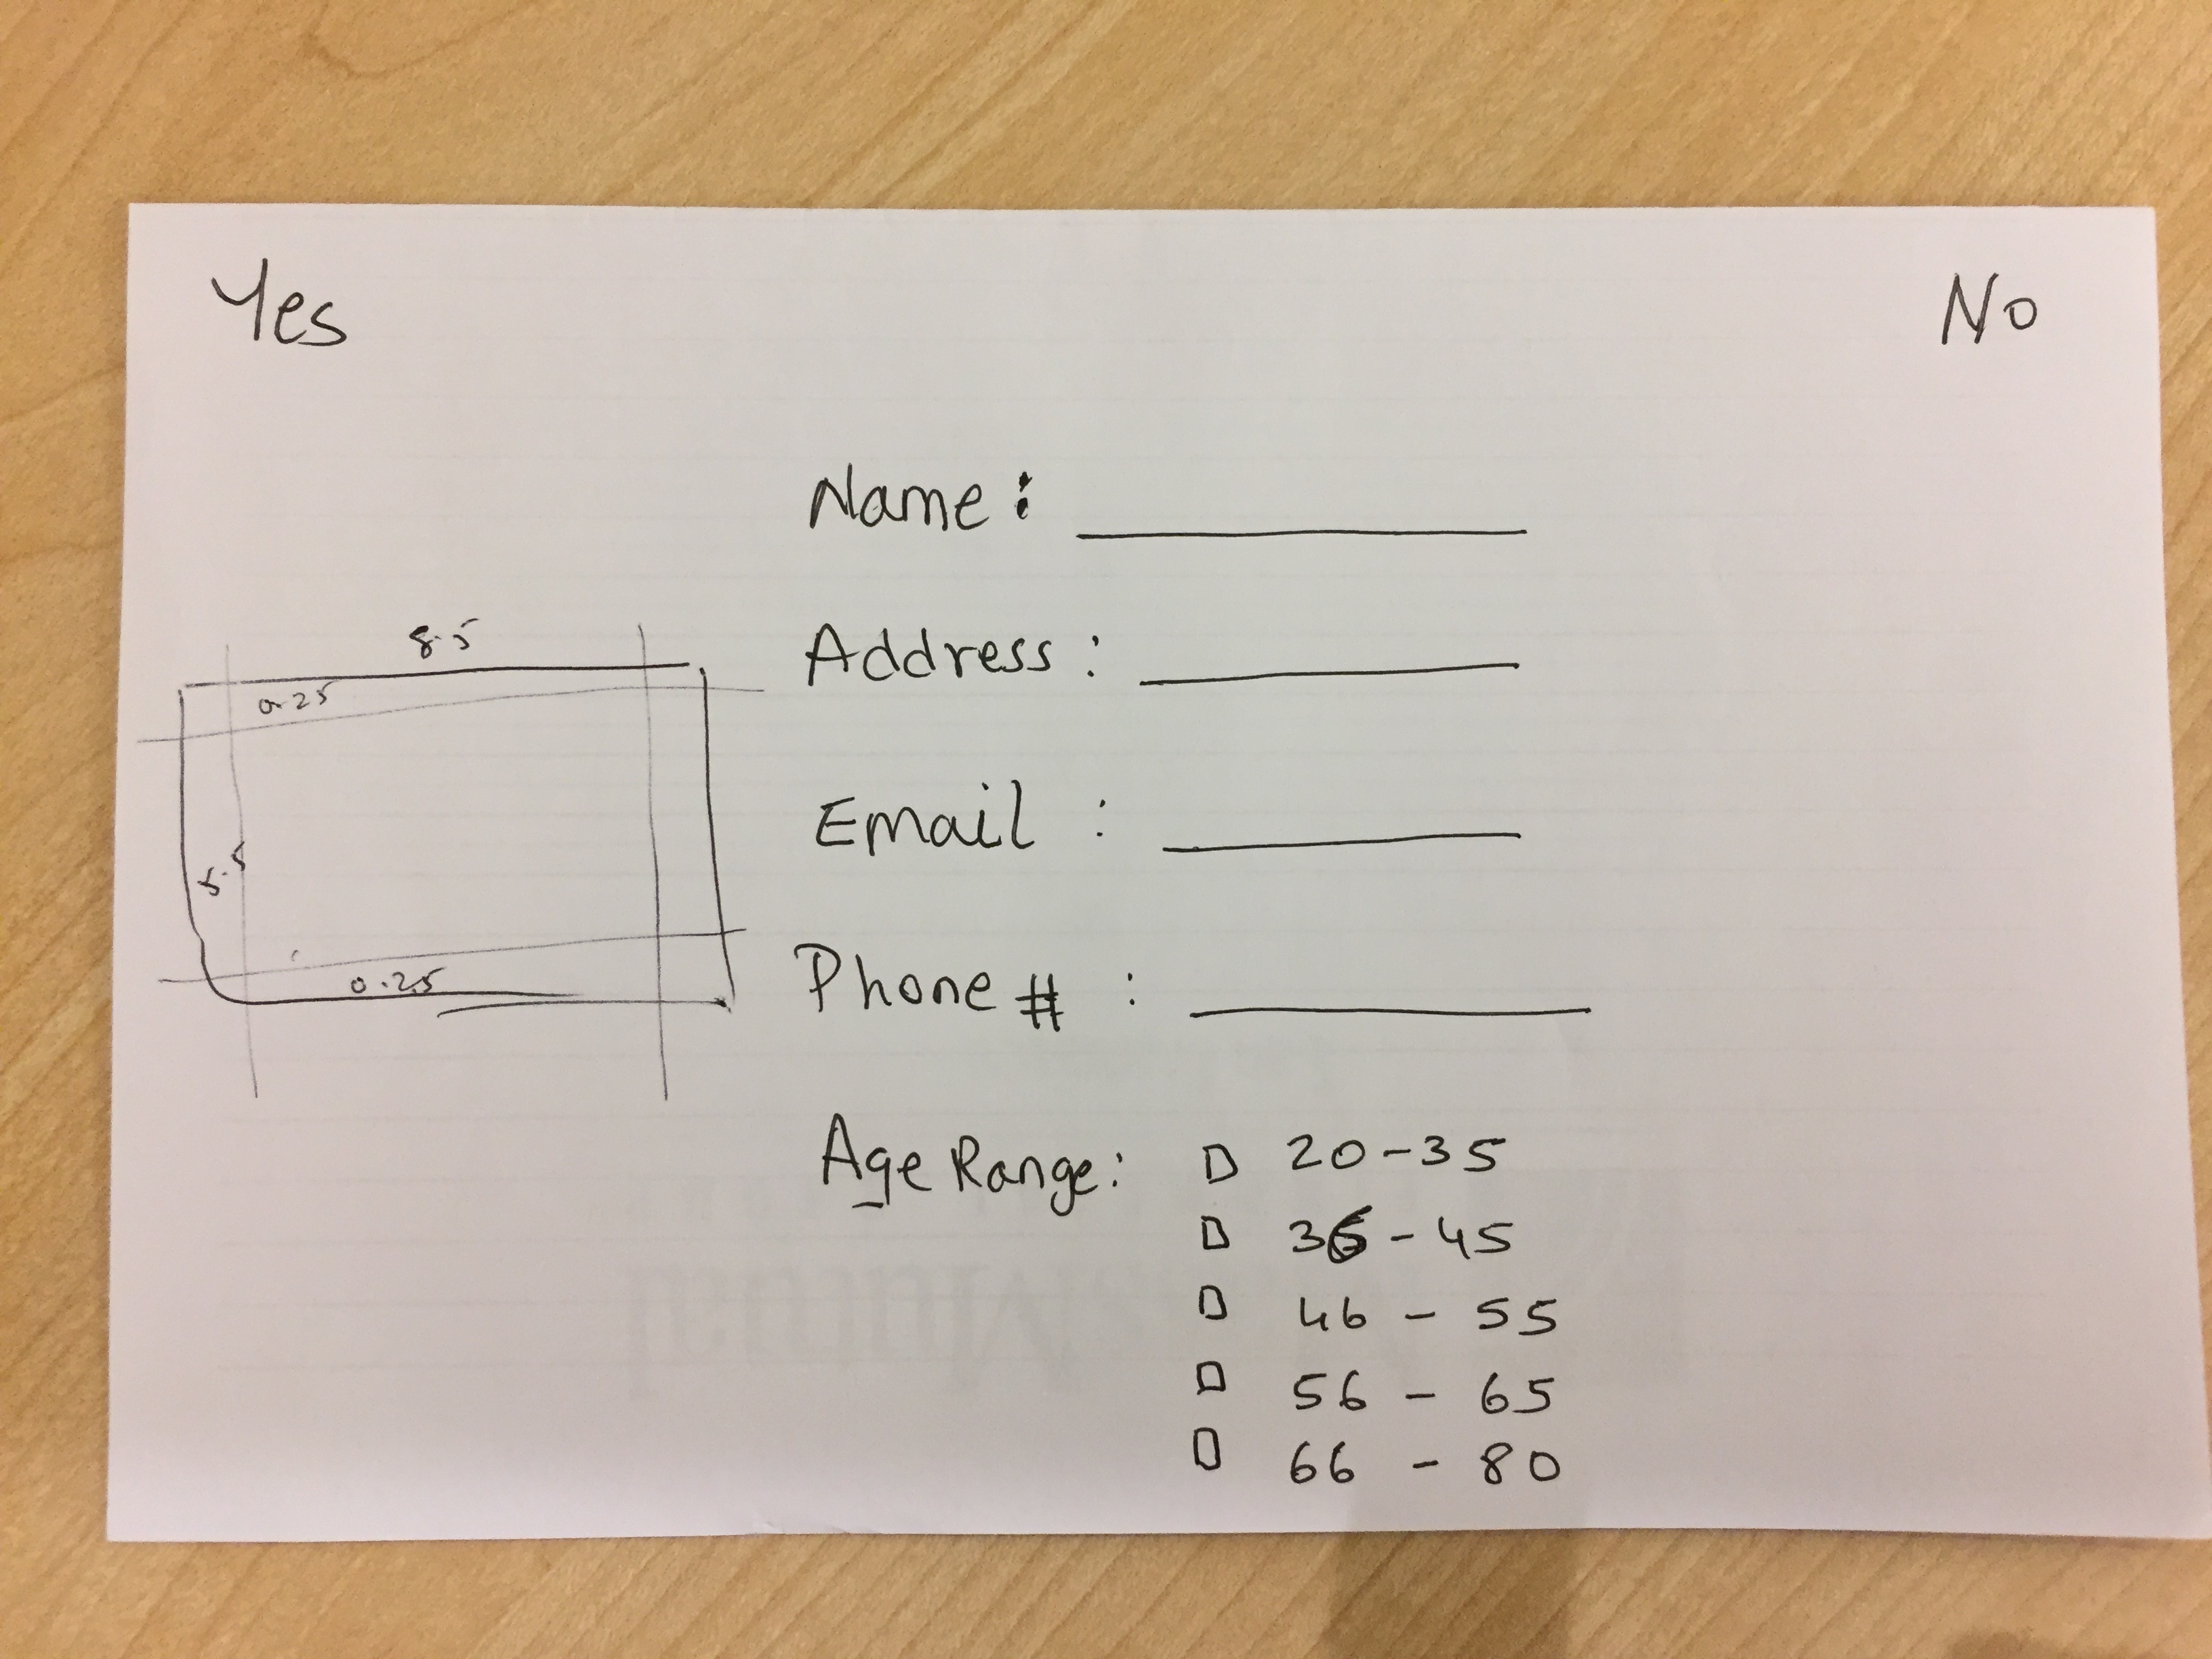 Yes No
Name: ____________
Address: ____________
Email : ____________
Phone # : ____________
8.5
0.25
5.5
0.25
Age Range: □ 20-35
□ 36-45
□ 46-55
□ 56-65
□ 66-80